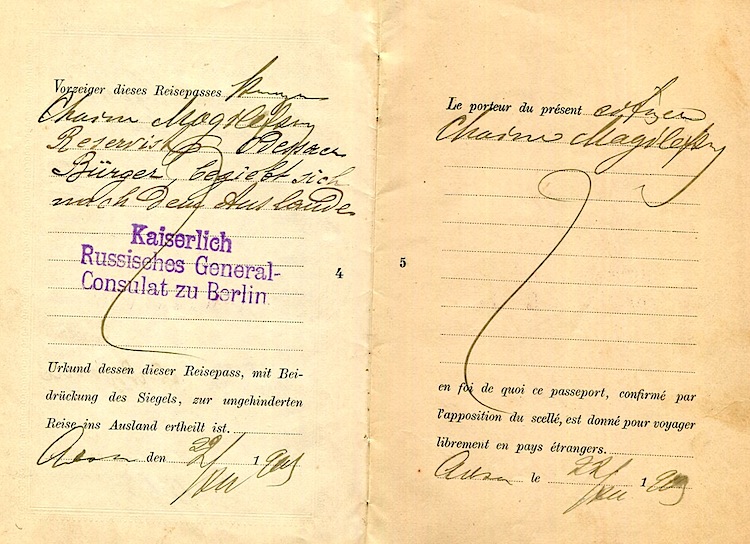 Vorzeiger dieses Reisepasses
Chaim Magilefsky
Reservist Odessaer
Bürger begiebt sich
nach dem Auslande
Kaiserlich
Russisches General-
Consulat zu Berlin
4
Urkund dessen dieser Reisepass, mit Bei-
drückung des Siegels, zur ungehinderten
Reise ins Ausland ertheilt ist.
den 22/ 190
5
Le porteur du présent citoyen
Chaim Magilefsky
en foi de quoi ce passeport, confirmé par
l'apposition du scellé, est donné pour voyager
librement en pays étrangers.
le 22/ 190